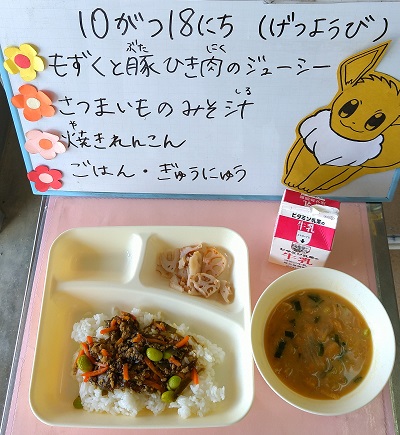 10がつ18にち (げつようび)
もずくと豚ひき肉のジューシー
ぶた にく
さつまいものみそ汁
しる
焼きれんこん
や
ごはん・ぎゅうにゅう
牛乳
牛乳